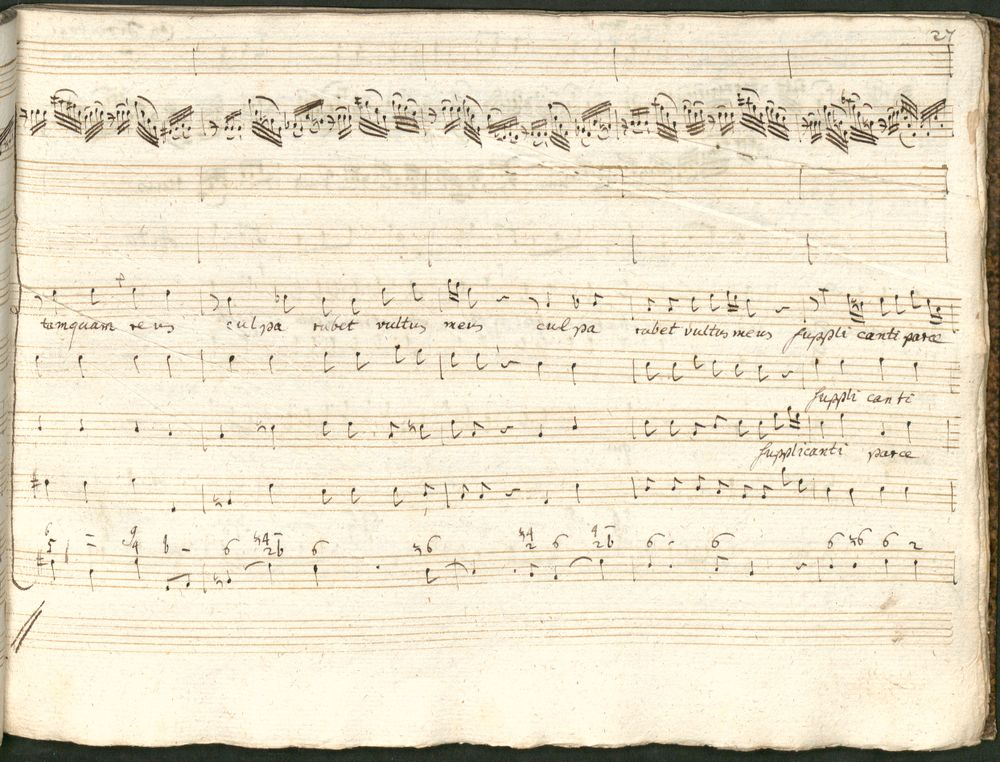 27
tamquam reus culpa rubet vultus meus culpa rubet vultus meus suppli canti parce
suppli canti
supplicanti parce
6 5 9 4 b - 6 ♮4 2 b 6 ♮6 ♮4 2 6 4 2 b 6 6 6 ♮6 6 2